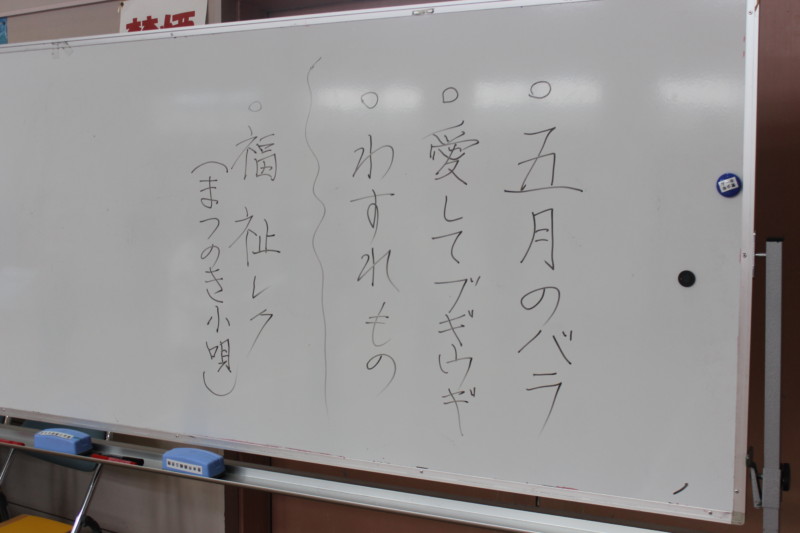 ○五月のバラ
○愛してブギウギ
○わすれもの
○福祉レク
(まつのき小唄)
禁煙